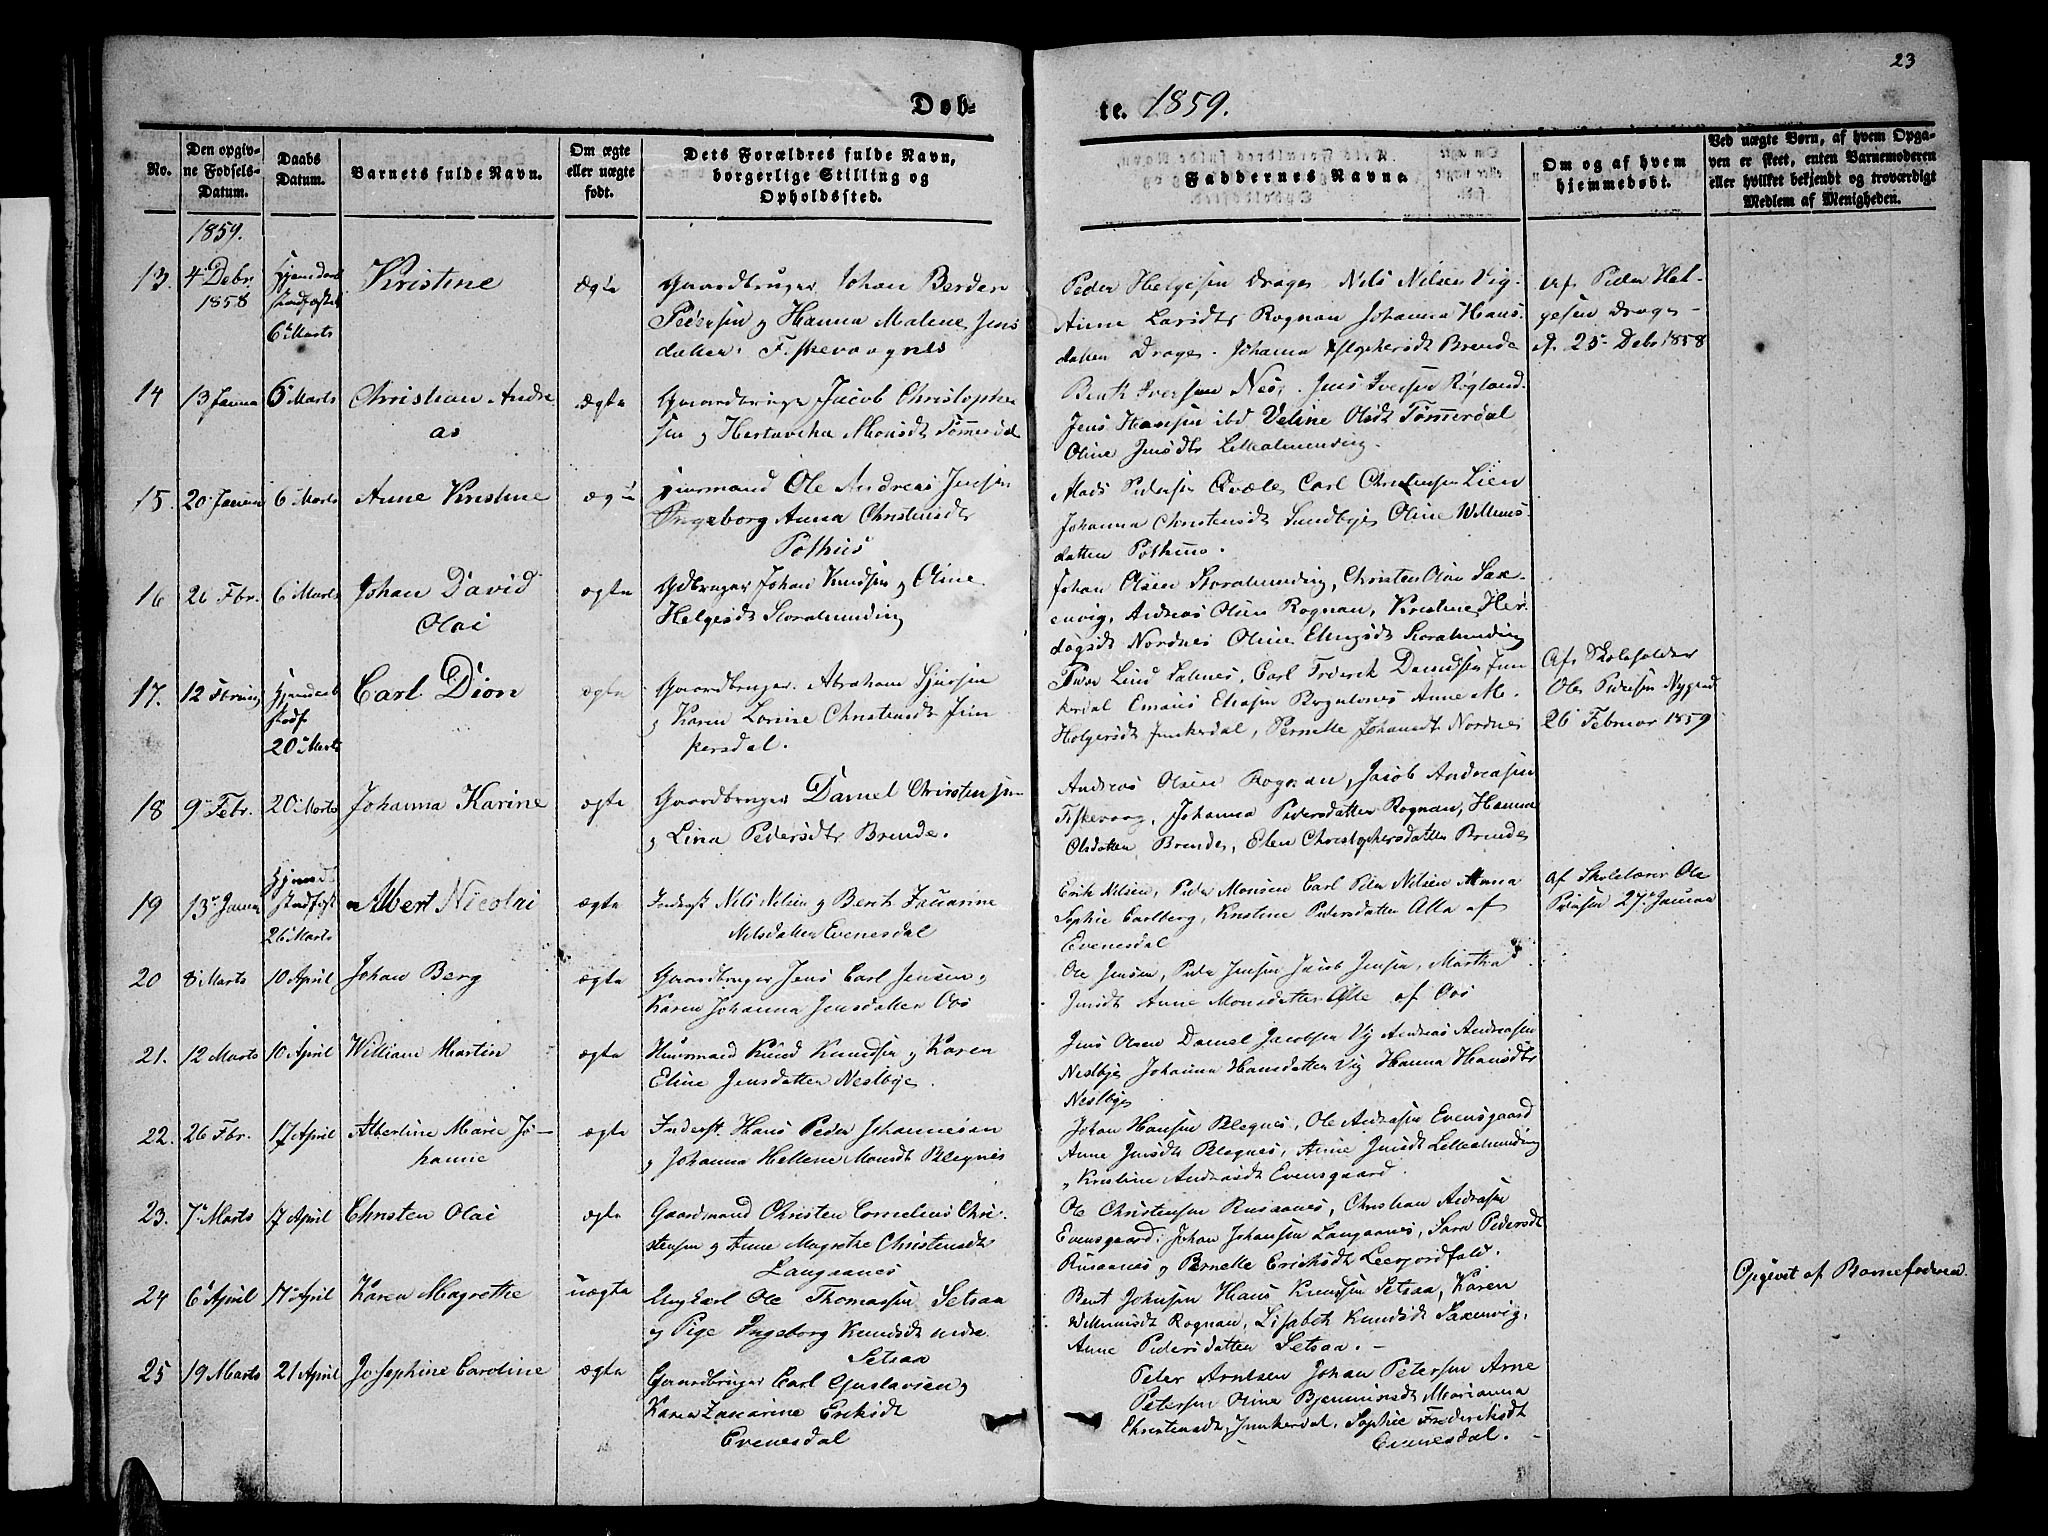 23
Døb-
te. 1859.
No.
Den opgiv-
ne Fødsels-
Datum.
Daabs
Datum.
Barnets fulde Navn.
Om ægte
eller uægte
født.
Dets Forældres fulde Navn,
borgerlige Stilling og
Opholdssted.
Faddernes Navne.
Om og af hvem
hjemmedøbt.
Ved uægte Børn, af hvem Opga-
ven er skeet, enten Barnemoderen
eller hvilket bekjendt og troværdigt
Medlem af Menigheden.
1859.
13. 4 Debr.
1858
6 Marts
Kristine
ægte
Gaardbruger Johan Berder
Pedersen og Hanna Malene Jens
datter. Fiskevaagnes
Peder Helgesen Drage, Nils Nilsen Vig
Anne Larsdtr Rognan Johanna Hans-
datter Drage. Johanna Brende
Af Peder Hel-
gesen Drage -
d. 25 Debr 1858
14 13 Janua 6 Marts Christian Andre
as
ægte
Gaardbruger Jacob Christopher
sen og Monsdt Tømmerdal
Bent Iversen Nes, Jens Iversen Røgland.
Jens Hansen ibd Veline Olsdt Tømmerdal
Oline Jensdtr Lillealmending.
15. 20 Januar 6 Marts Anne Kristine
ægte
Huusmand Ole Andreas Jensen
Ingeborg Anna Christensdtr
Pothus
Mads Pedersen Qvæle, Carl Christensen Lien
Johanna Christensdt Sundbye, Oline Willums-
datter Pothus.
16 26 Fbr. 6 Marts Johan David
Olai
ægte
Gdbruger Johan Knudsen og Oline
Helgesdt Storalmending
Johan Olsen Storalmending, Christen Olsen Sax-
envig, Andreas Olsen Rognan, Kristine Her-
logsdt Nordnes Oline Storalmending
17. 12 Februar
20 Marts
Carl Dion
ægte
Gaardbruger. Abraham Sjursen
og Karen Lovise Christensdt Jun
kersdal.
Lind Saltnes, Carl Frederik Danielsen Jun
kerdal Emaus Eliasen Anne M.
Holgersdt Junkerdal, Pernelle Johansdt Nordnes
Af Skoleholder
Ole Pedersen
26 Februar 1859
18 9 Febr. 20 Marts Johanna Karine
ægte
Gaardbruger Daniel Christensen
og Lina Pedersdtr Brende.
Andreas Olsen Rognan, Jacob Andreasen
Fiskevaag, Johanna Pedersdatter Rognan, Hanna
Olsdatter Brende, Elen Christophersdatter Brende
19 13 Januar
26 Marts
Albert Nicolai
ægte
Inderst Nils Nilsen og Berit Zakarine
Nilsdatter Evenesdal
Erik Nilsen, Peder Monsen Carl Peter Nilsen Anna
Sophie Carlberg, Kristine Pedersdatter Alle af
Evenesdal
af Skolelærer Ole
Pedersen 27 Januar
20 8 Marts 10 April Johan Berg
ægte
Gaardbruger Jens Carl Jensen og
Karen Johanna Jensdatter Oos
Ole Jensen, Peder Jensen Jacob Jensen, Martha
Jensdt Anne Monsdatter Alle af Oos
21. 12 Marts 10 April William Martin
ægte
Huusmand Knud Knudsen og Karen
Eline Jensdatter Nestbye.
Jens Olsen Daniel Jacobsen Vig Andreas Andreasen
Nestbye Johanna Hansdatter Vig Hanna Hansdtr
Nestbye
22. 26 Fbr. 17 April Albertine Marie Jo-
hanne
ægte
Inderst. Hans Peder Johannesen
og Johanna Hellene Monsdt Blegnes
Johan Hansen Blegnes, Ole Andreasen Evensgaard
Anne Jensdt Blegnes, Anne Jensdt Lillealmending
og Kristine Andreasdt Evensgaard.
23. 7 Marts 17 April Christen Olai
ægte
Gaardmand Christen Cornelius Chri-
stensen og Anne Magrethe Christensdt
Langaanes
Ole Christensen Rusaanes, Christian Andreasen
Evensgaard, Johan Johansen Langaanes, Sara Pedersdt
Rusaanes og Pernelle Eriksdt
24 6 April 17 April Karen Magrethe
uægte
Ungkarl Ole Thomassen Setsaa
og Pige Ingeborg Knudsdt nedre
Setsaa
Bent Johnsen Hans Knudsen Setsaa, Karen
Willumsdt Rognan, Lisabeth Knudsdt Saxenvig,
Anne Pedersdatter Setsaa. -
Opgivet af Barnefaderen
25 19 Marts 21 April Josephine Caroline
ægte
Gaardbruger Carl Gustavsen og
Karen Zakarine Eriksdt
Evenesdal
Peter Arntsen Johan Petersen Arne
Petersen Oline Marianna
Christensdt, Junkerdal, Sophie Frederiksdt
Evenesdal.